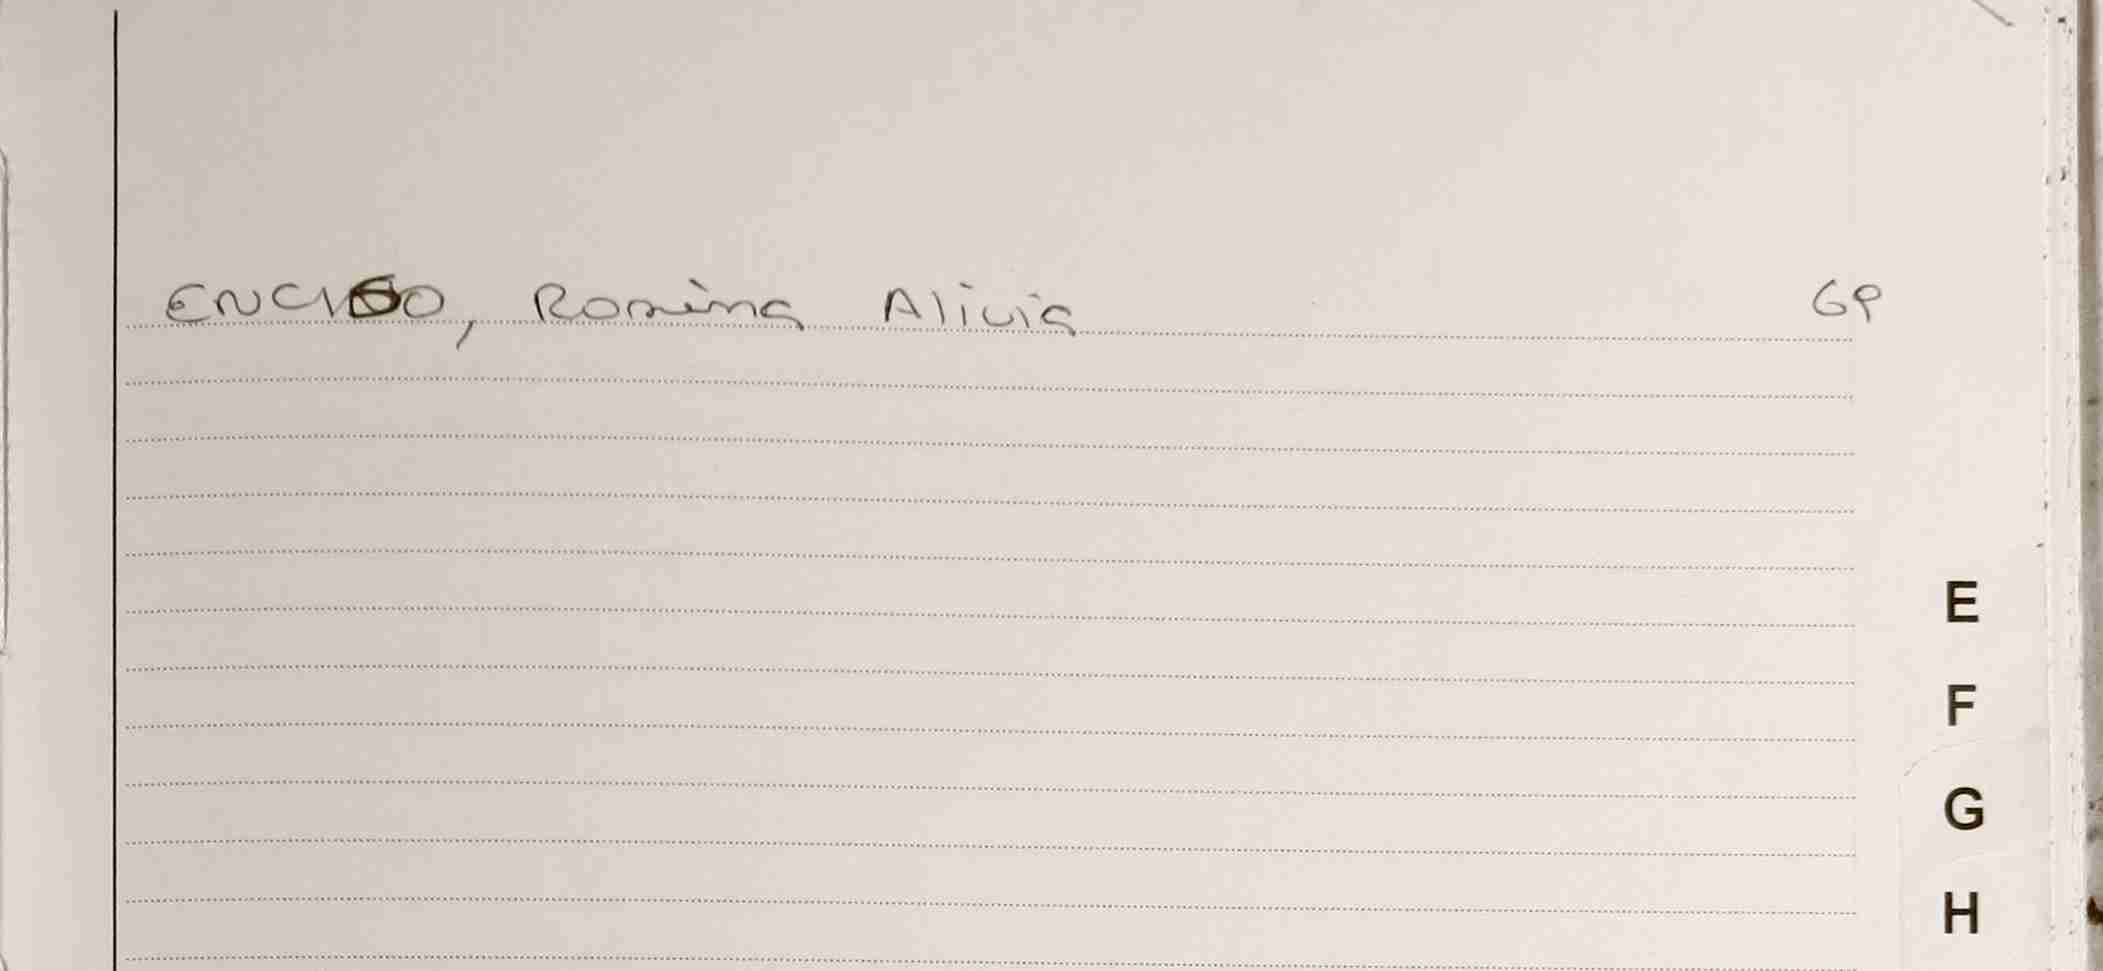 ENCISO, Romina Alicia 69
E
F
G
H